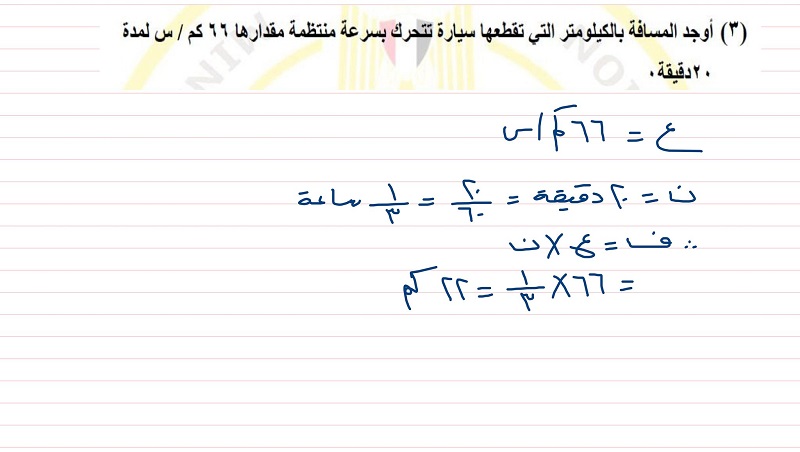 (٣) أوجد المسافة بالكيلومتر التي تقطعها سيارة تتحرك بسرعة منتظمة مقدارها ٦٦ كم / س لمدة
٢٠ دقيقة ٠
ع = ٦٦ كم/س
ن = ٢٠ دقيقة = ٢٠/٦٠ = ١/٣ ساعة
∴ ف = ع × ن
= ٦٦ × ١/٣ = ٢٢ كم